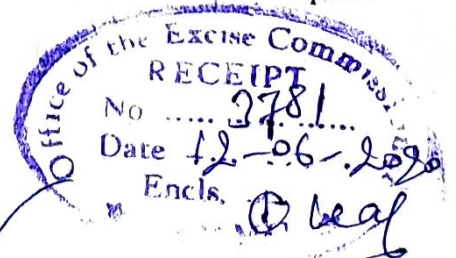 Office of the Excise Commissi
RECEIPT
No ..... 3781 .....
Date 12-06-2020
Encls. ① leaf